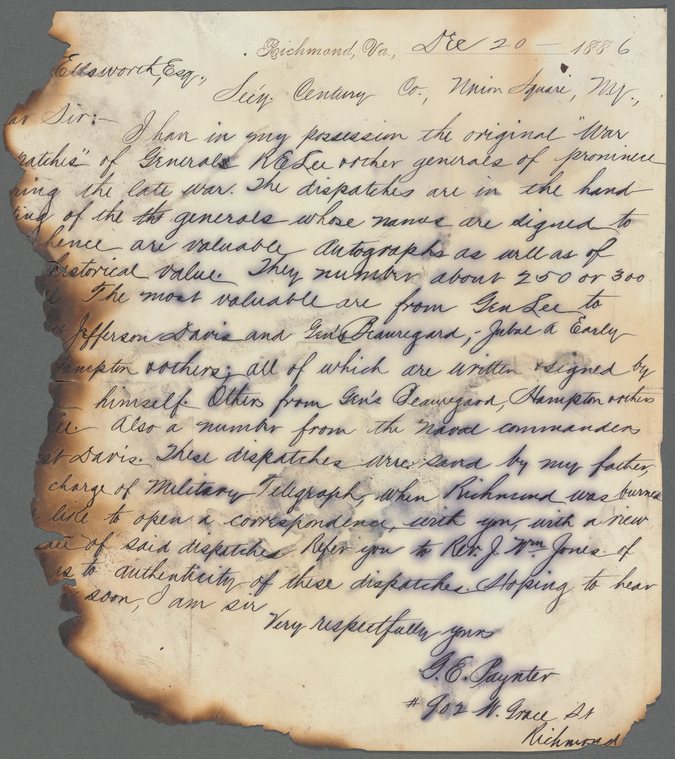 Richmond, Va., Dec 20 — 1886
Ellsworth, Esq.,
Sec'y. Century Co., Union Square, N.Y.,
Sir:-
I have in my possession the original "War
patches" of Generals R E Lee & other generals of prominece
ing the late war. The dispatches are in the hand
ting of the the generals whose names are signed to
hence are valuable autographs as well as of
historical value. They number about 250 or 300
The most valuable are from Gen Lee to
Jefferson Davis and Gen's Beauregard, Jubal A Early
ampton & others; all of which are written & signed by
himself. Others from Gen's Beauregard, Hampton & others
Lee. Also a number from the naval commanders
st Davis. These dispatches were saved by my father,
charge of Military Telegraph, when Richmond was burned
like to open a correspondence, with you, with a view
sale of said dispatches. Refer you to Rev. J. Wm Jones of
as to authenticity of these dispatches. Hoping to hear
soon, I am sir
Very respectfully yours
G. E. Paynter
# 902 W. Grace St
Richmond